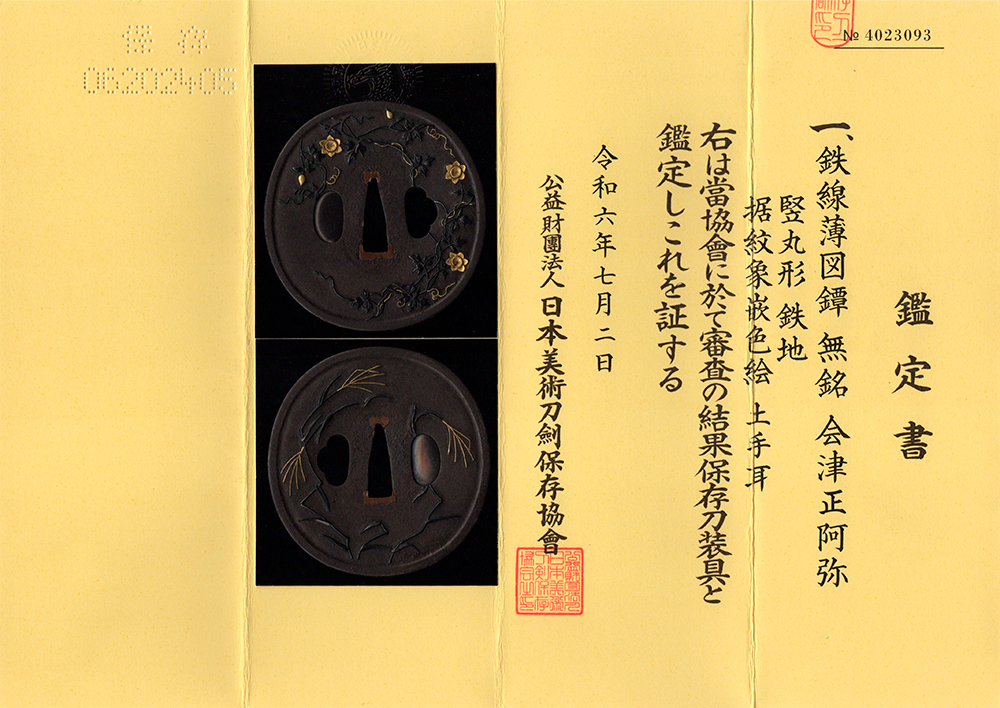 № 4023093
鑑定書
一、鉄線薄図鐔 無銘 会津正阿弥
竪丸形 鉄地
据紋象嵌色絵 土手耳
右は當協會に於て審査の結果保存刀装具と
鑑定しこれを証する
令和六年七月二日
公益財團法人 日本美術刀劍保存協會
保存
06202405